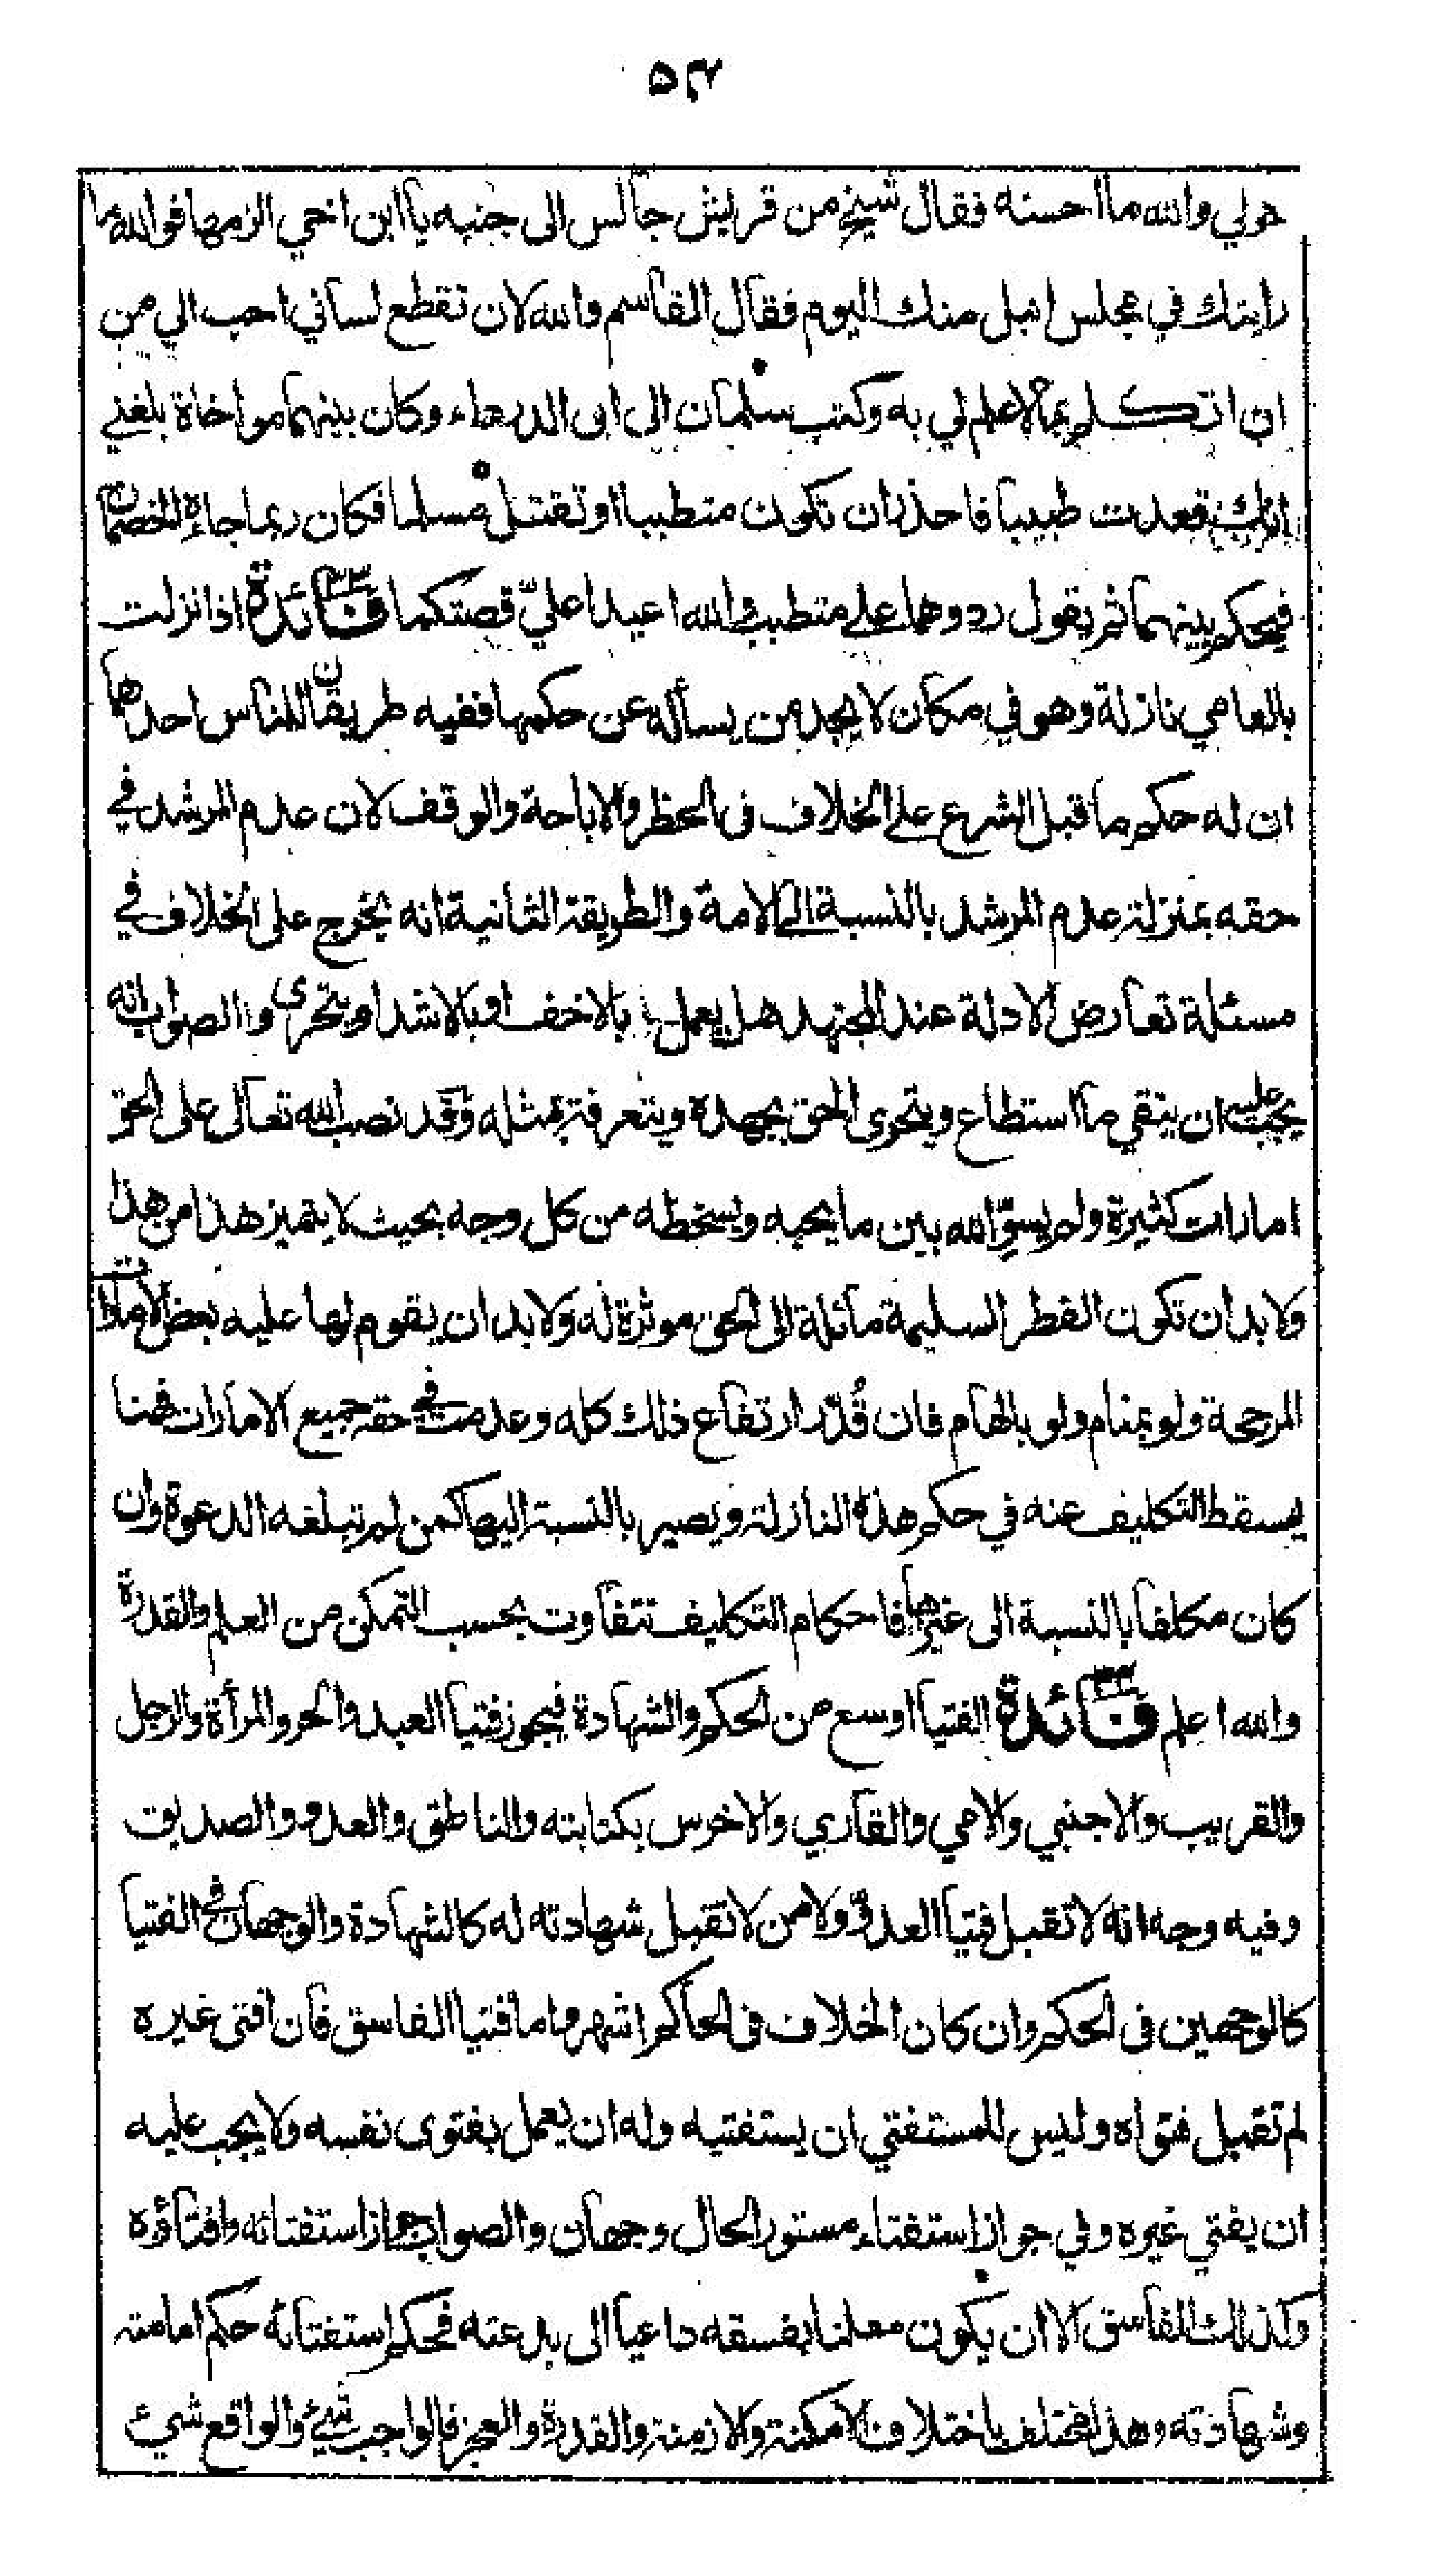 ۵۳۴
حولي والله ما احسنه فقال شيخ من قريش جالس الى جنبه يا ابن اخي الزمها فوالله ما
رايتك في مجلس انبل منك اليوم فقال القاسم والله لان تقطع لساني احب الي من
ان اتكلم بما لا علم لي به وكتب سلمان الى ابى الدرداء وكان بينهما مواخاة بلغني
انك قعدت طبيبا فاحذر ان تكون متطببا او تقتل مسلما فكان ربما جاءه الخصمان
فيحكم بينهما ثم يقول ردوهما علي متطبب والله اعيدا عليّ قصتكما فائدة اذا نزلت
بالعامي نازلة وهو في مكان لا يجد من يسأله عن حكمها ففيه طريقان للناس احدهما
ان له حكم ما قبل الشرع على الخلاف فى الحظر والاباحة والوقف لان عدم المرشد في
حقه بمنزلة عدم المرشد بالنسبة الى الامة والطريقة الثانية انه يخرج على الخلاف في
مسئلة تعارض الادلة عند المجتهد هل يعمل بالاخف او بالاشد او يتحرى والصواب انه
يجب عليه ان يتقي ما استطاع ويتحرى الحق بجهده ويتعرفة بمثله وقد نصب الله تعالى على الحق
امارات كثيرة ولم يسوّ الله بين ما يحبه ويسخطه من كل وجه بحيث لا يتميز هذا من هذا
ولا بد ان تكون الفطر السليمة مائلة الى الحق موثرة له ولا بد ان يقوم لها عليه بعض الامارات
المرجحة ولو بمنام ولو بالهام فان قُدّر ارتفاع ذلك كله وعدمت في حقه جميع الامارات فهنا
يسقط التكليف عنه في حكم هذه النازلة ويصير بالنسبة اليها كمن لم تبلغه الدعوة وان
كان مكلفا بالنسبة الى غيرها فاحكام التكليف تتفاوت بحسب التمكن من العلم والقدرة
والله اعلم فائدة الفتيا اوسع من الحكم والشهادة فيجوز فتيا العبد والحر والمرأة والرجل
والقريب والاجنبي والامي والقاري والاخرس بكتابته والناطق والعدو والصديق
وفيه وجه انه لا تقبل فتيا العدو ولا من لا تقبل شهادته له كالشهادة والوجهان في الفتيا
كالوجهين فى الحكم وان كان الخلاف فى الحاكم اشهر واما فتيا الفاسق فان افتى غيره
لم تقبل فتواه وليس للمستفتي ان يستفتيه وله ان يعمل بفتوى نفسه ولا يجب عليه
ان يفتي غيره وفي جواز استفتاء مستور الحال وجهان والصواب جواز استفتائه وافتاؤه
وكذلك الفاسق الا ان يكون معلنا بفسقه داعيا الى بدعته فحكم استفتائه حكم امامته
وشهادته وهذا يختلف باختلاف الامكنة والازمنة والقدرة والعجز فالواجب شيء والواقع شيء